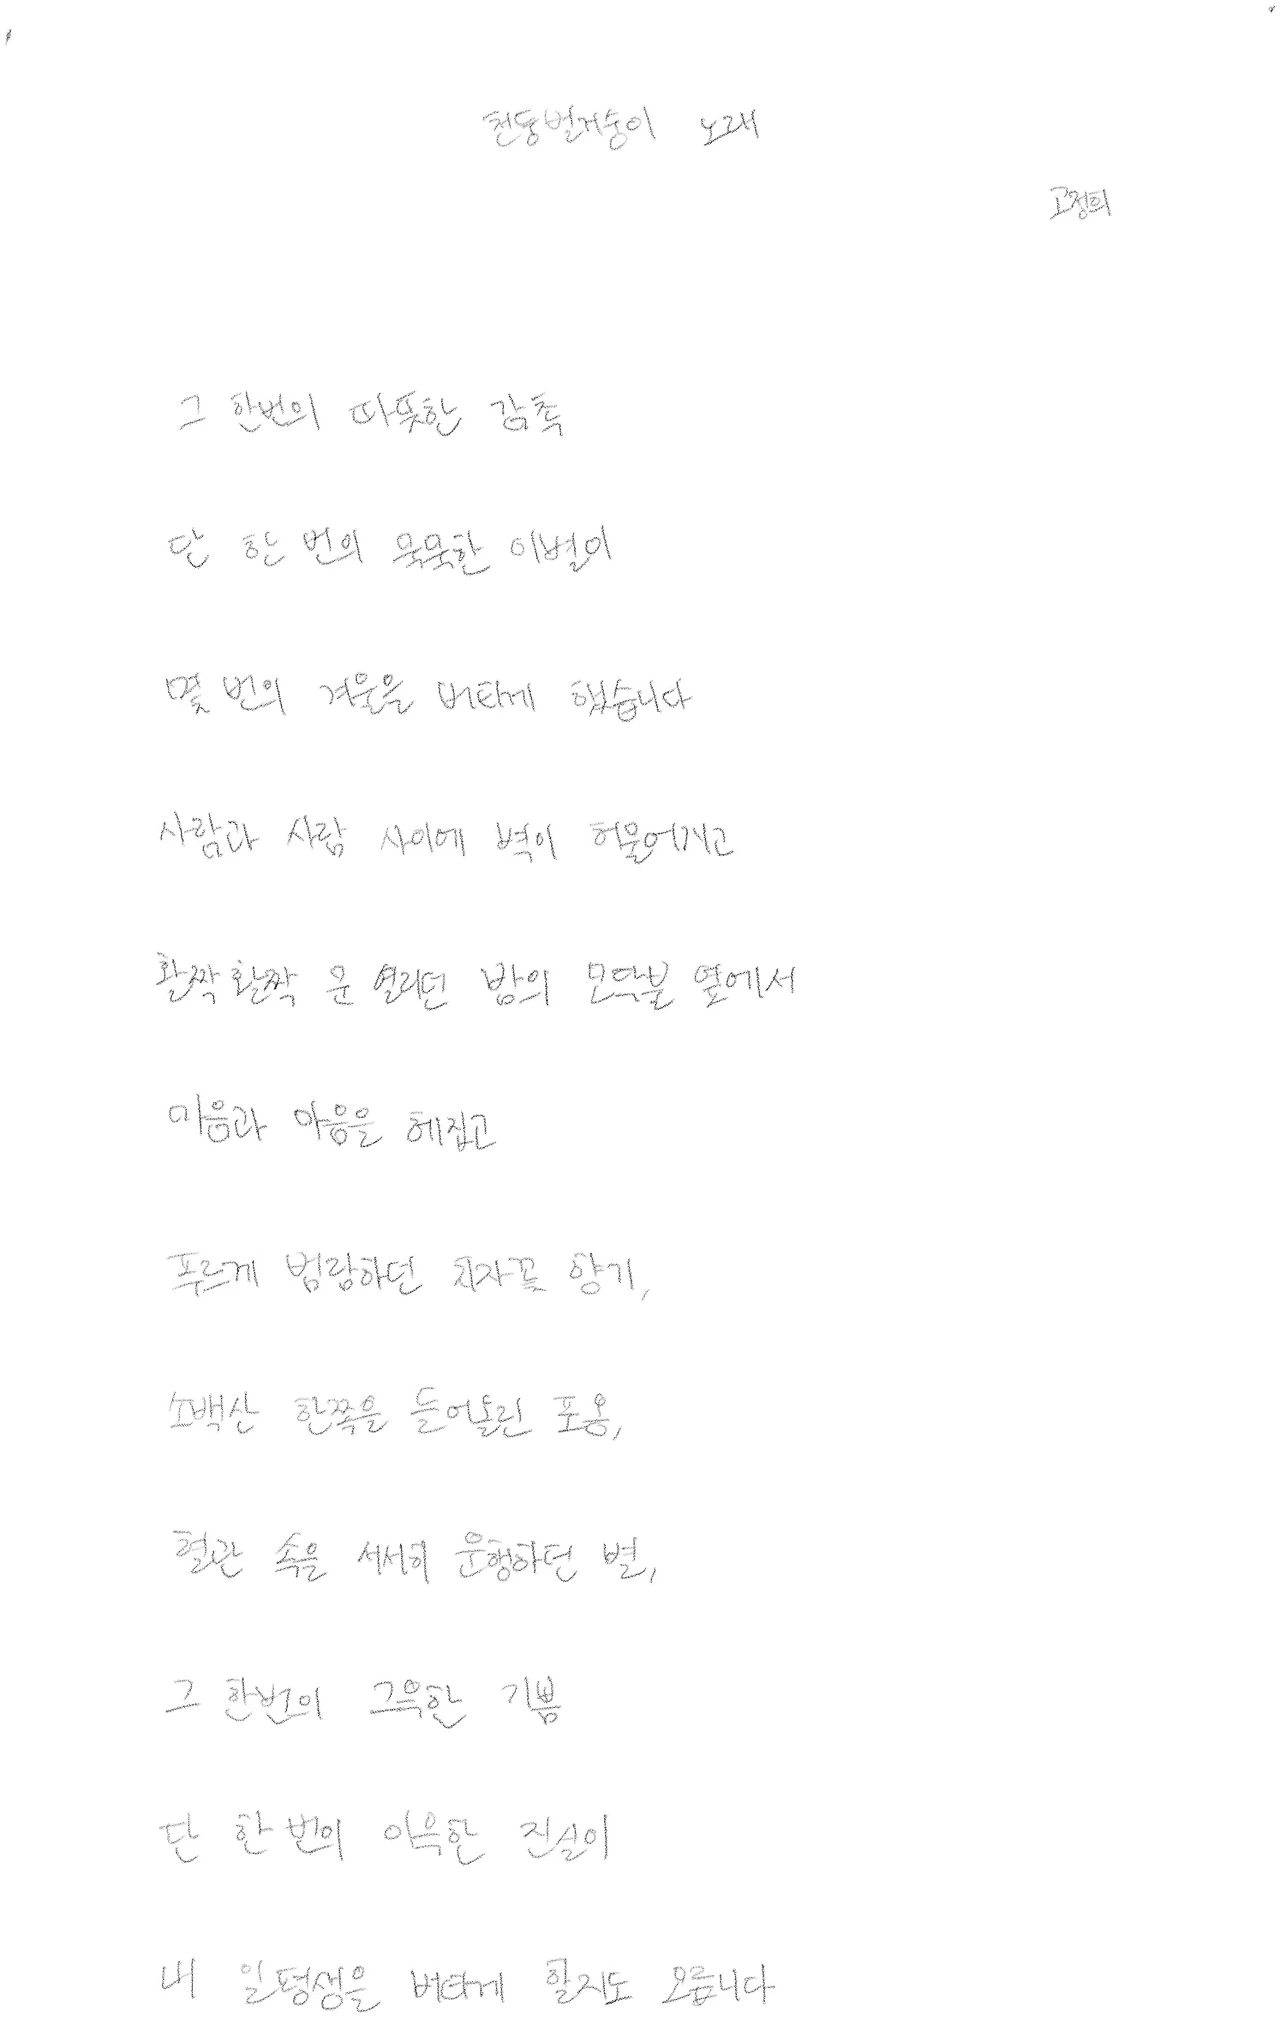 천둥벌거숭이 노래
고정희
그 한번의 따뜻한 감촉
단 한 번의 묵묵한 이별이
몇 번의 겨울을 버티게 했습니다
사람과 사람 사이에 벽이 허물어지고
활짝 활짝 문 열리던 밤의 모닥불 옆에서
마음과 마음을 헤집고
푸르게 범람하던 치자꽃 향기,
소백산 한쪽을 들어올린 포옹,
혈관 속을 서서히 운행하던 별,
그 한번의 그윽한 기쁨
단 한 번의 이윽한 진실이
내 일평생을 버티게 할지도 모릅니다